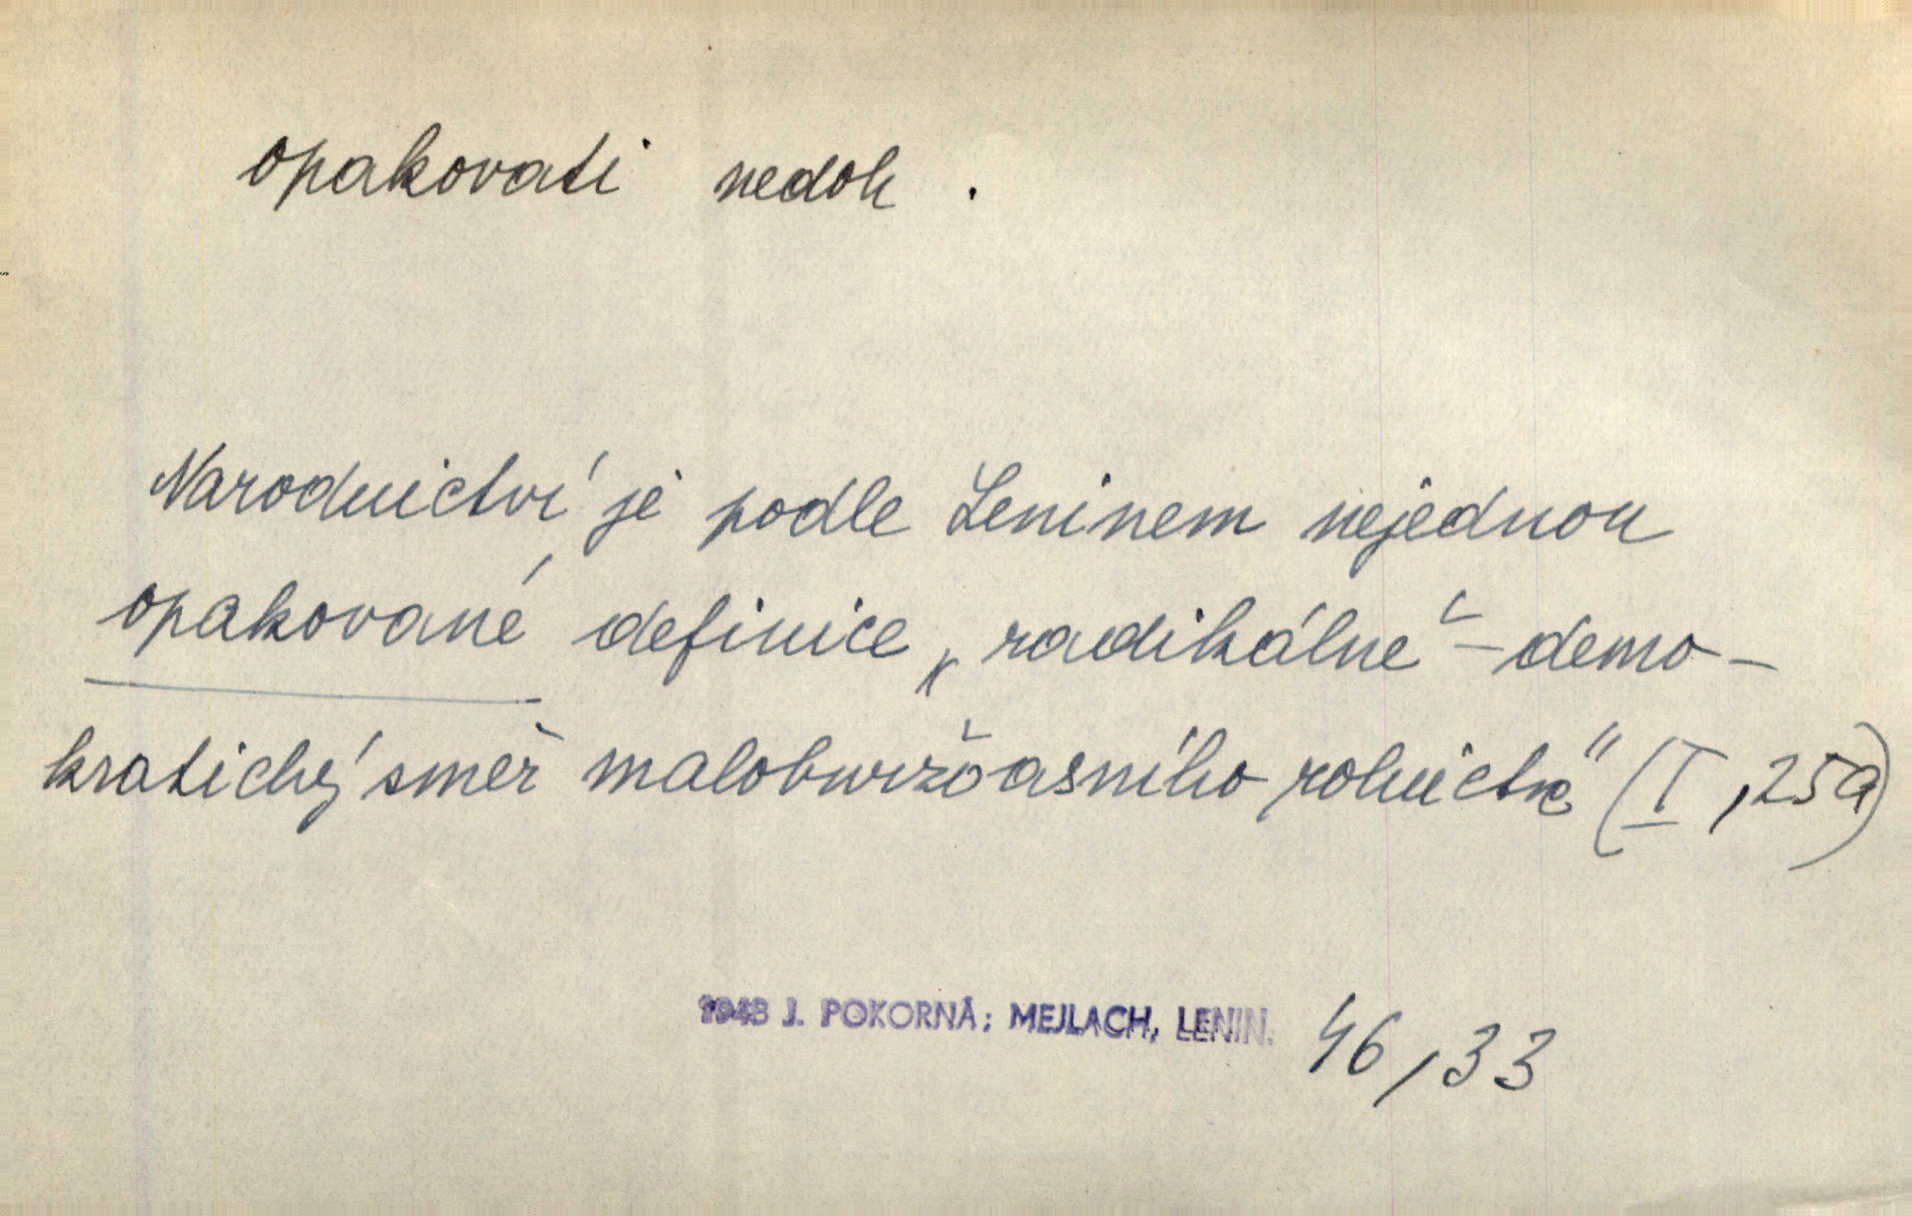 opakovati nedok.
Narodnictví je podle Leninem nejednou
opakované definice „radikálně-demo-
kratický směr maloburžoasního rolnictva" (I, 259)
1948 J. POKORNÁ: MEJLACH, LENIN. 46, 33